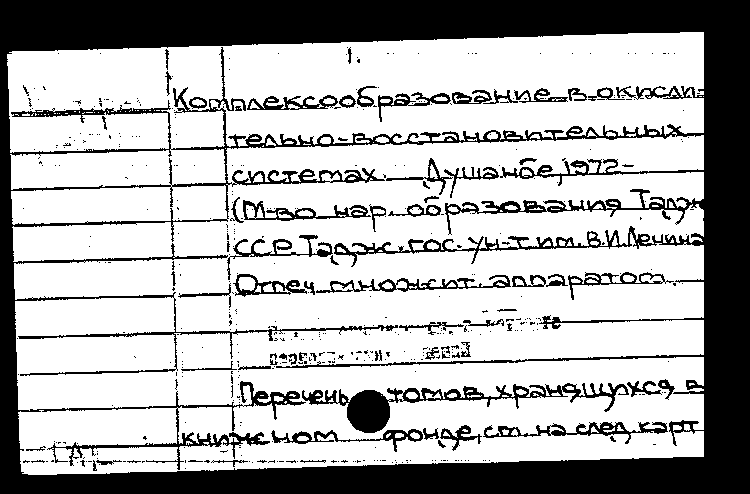 1.
Комплексообразование в окисли-
тельно-восстановительных
системах. Душанбе, 1972-
(М-во нар. образования Тадж
ССР. Тадж. гос. ун-т им. В.И.Ленина
Отпеч. множит. аппаратом.
Перечень томов, хранящихся в
книжном фонде, см. на след. карт